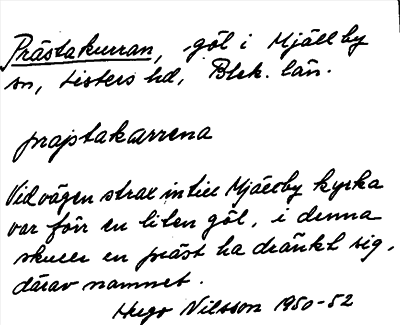 Prästakurran, göl i Mjällby
sn, Listers hd, Blek. län.
prajstakarrena
Vid vägen strax intill Mjällby kyrka
var förr en liten göl, i denna
skulle en präst ha dränkt sig,
därav namnet.
Hugo Nilsson 1950-52